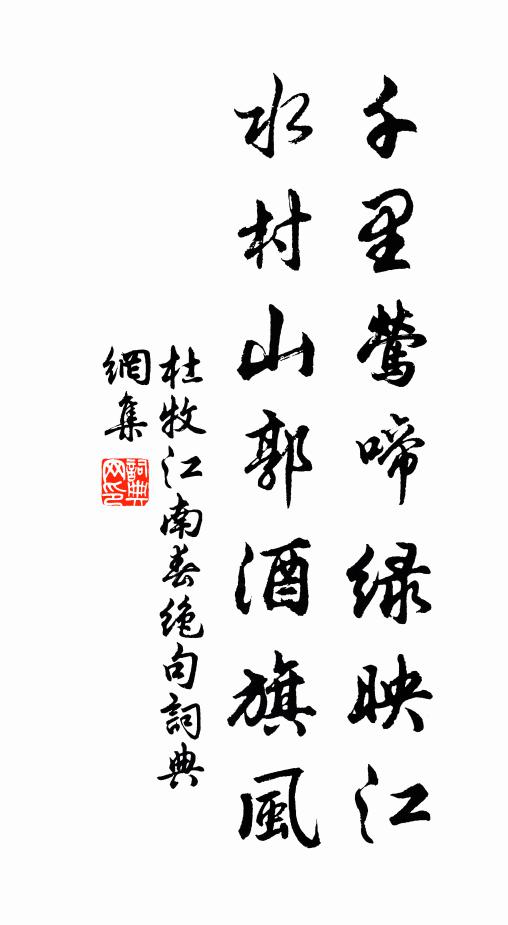 千里鶯啼绿映江
水村山郭酒旗風
杜牧江南春絶句詞典
網集
詞典网印